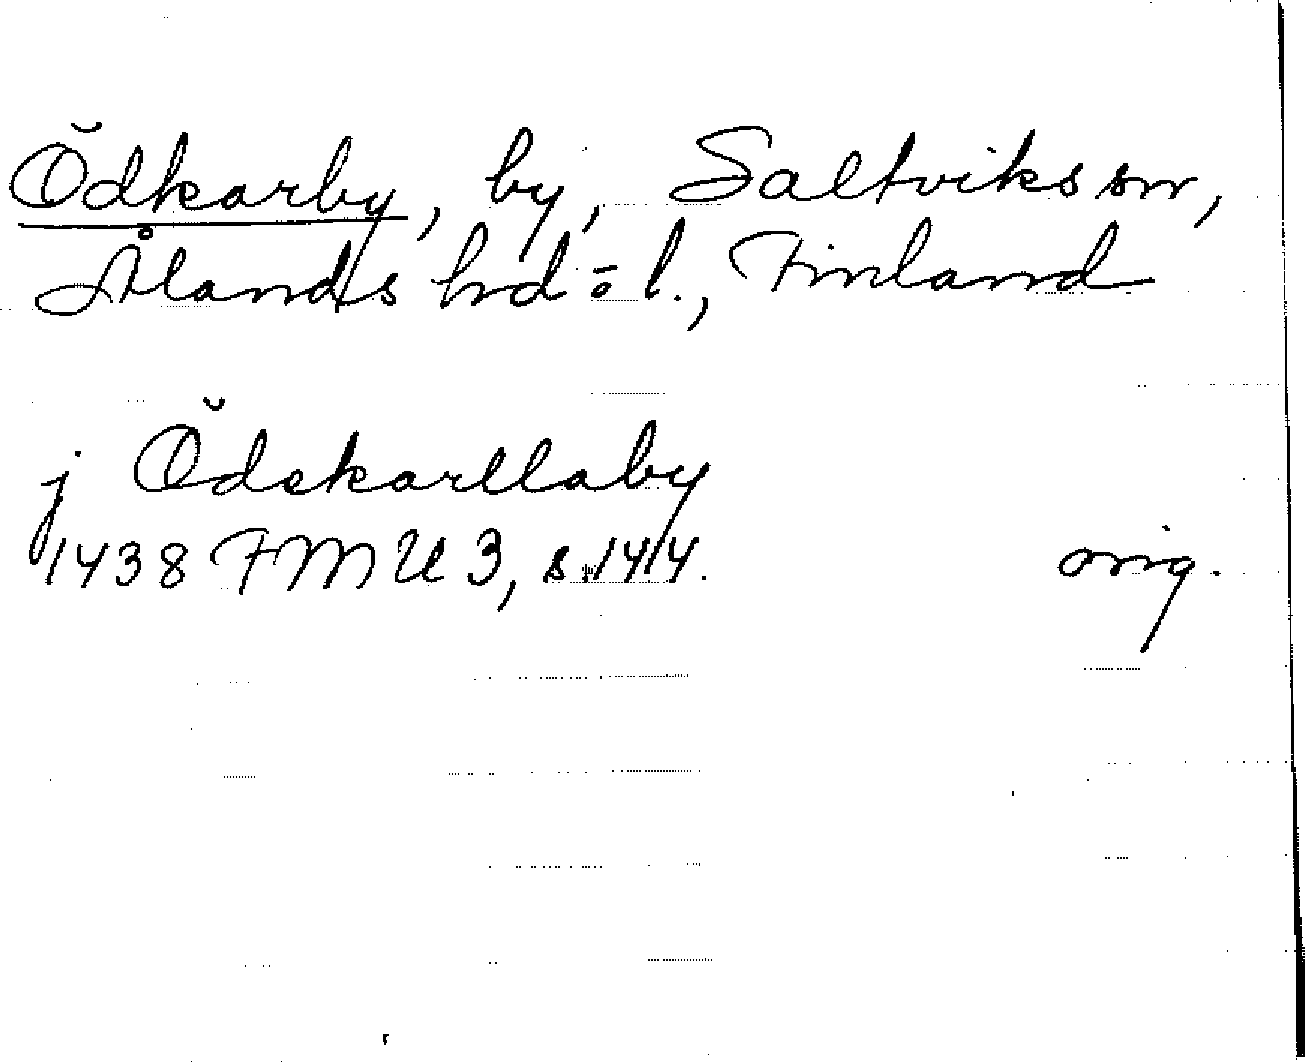 Ödkarby, by, Saltviks sn,
Ålands hd o l., Finland
j Ödekarllaby
1438 FMU 3, s. 1414.
orig.